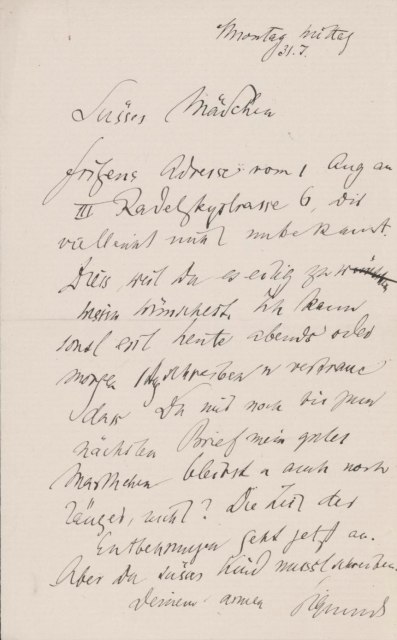 Montag Mittag
31. 7.
Süsses Mädchen
Adresse vom 1 Aug an
III Radetzkystrasse 6, Dir
vielleicht nicht unbekannt.
Dies, weil Du es eilig zu
wissen wünschest. Ich kann
sonst erst heute abends oder
morgen schreiben u vertraue
dass Du mir noch bis zum
nächsten Brief mein gutes
Marthchen bleibst u auch noch
länger, nicht? Die Zeit der
Entbehrungen geht jetzt an.
Aber Du süsses Kind musst schreiben
Deinem armen Sigmund